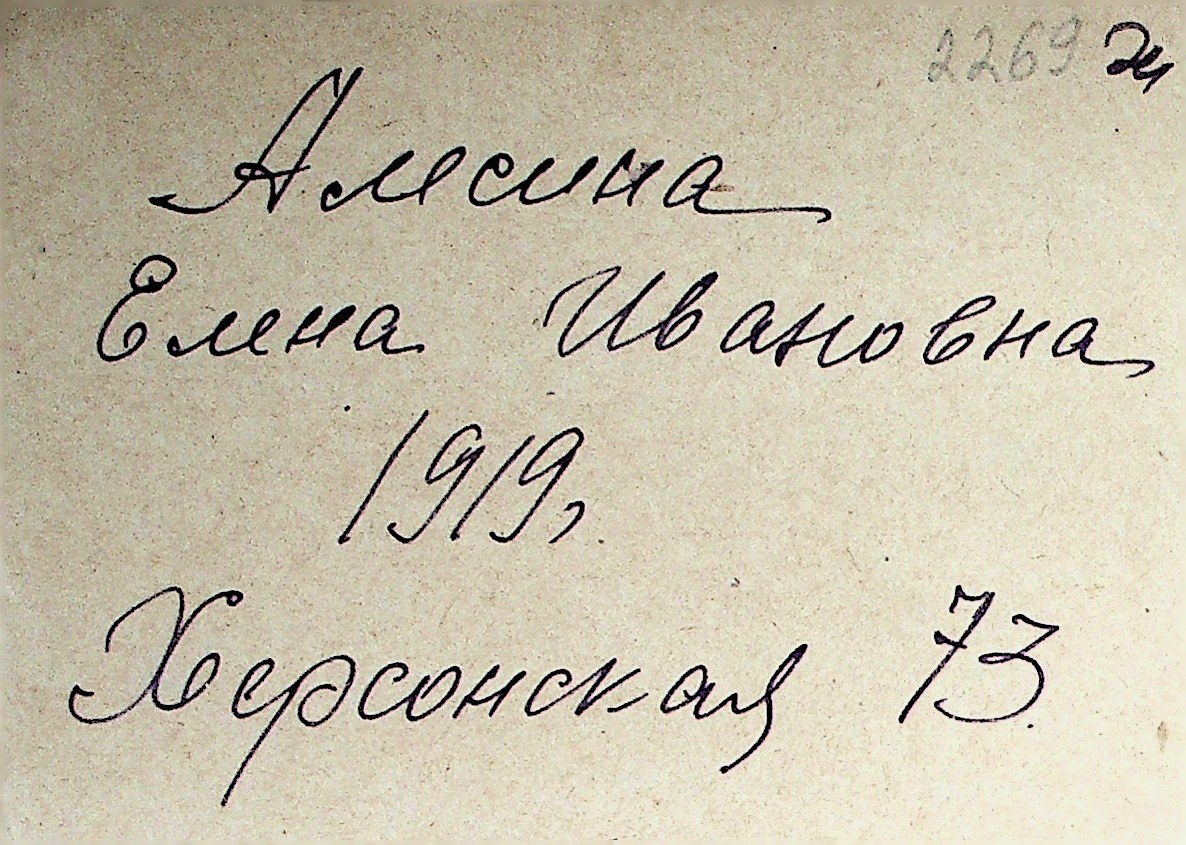 2269
Алесина
Елена Ивановна
1919,
Херсонская 73.